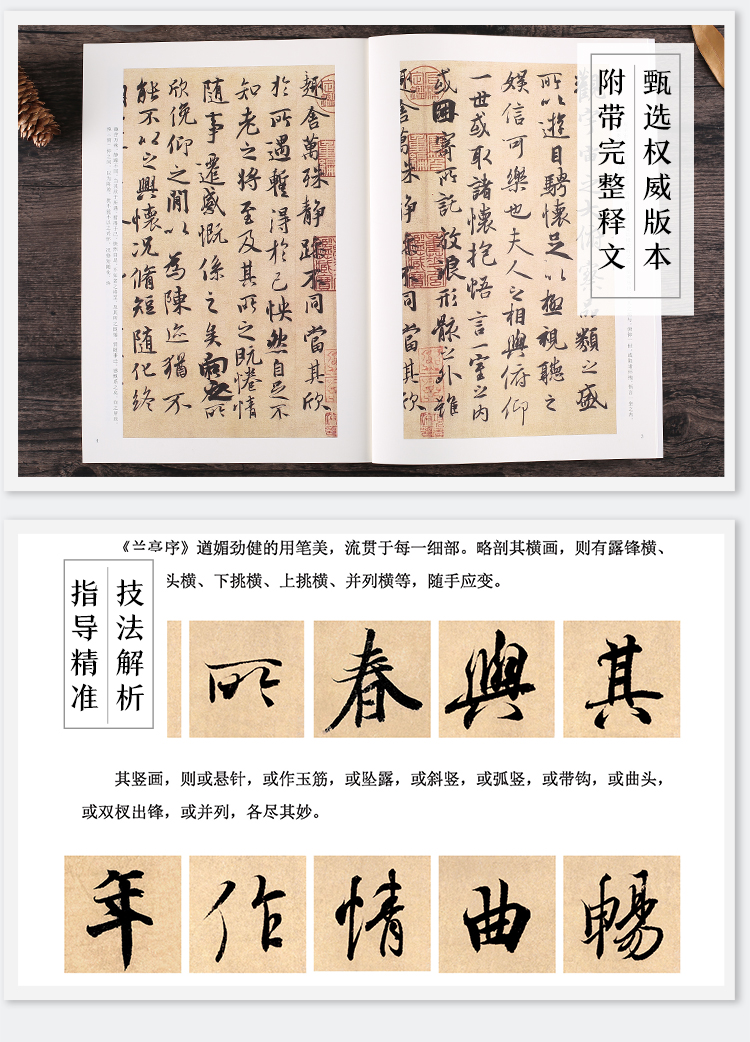 甄选权威版本
附带完整释文
俯察品類之盛
所以遊目騁懷足以極視聽之
娛信可樂也夫人之相與俯仰
一世或取諸懷抱悟言一室之內
或因寄所託放浪形骸之外雖
趣舍萬殊静躁不同當其欣
趣舍萬殊静躁不同當其欣
於所遇蹔得於己怏然自足不
知老之將至及其所之既惓情
隨事遷感慨係之矣向之所
欣俛仰之閒以為陳迹猶不
能不以之興懷況脩短隨化終
《兰亭序》遒媚劲健的用笔美，流贯于每一细部。略剖其横画，则有露锋横、
头横、下挑横、上挑横、并列横等，随手应变。
技法解析
指导精准
其 興 春 所
其竖画，则或悬针，或作玉筋，或坠露，或斜竖，或弧竖，或带钩，或曲头，
或双杈出锋，或并列，各尽其妙。
暢 曲 情 作 年